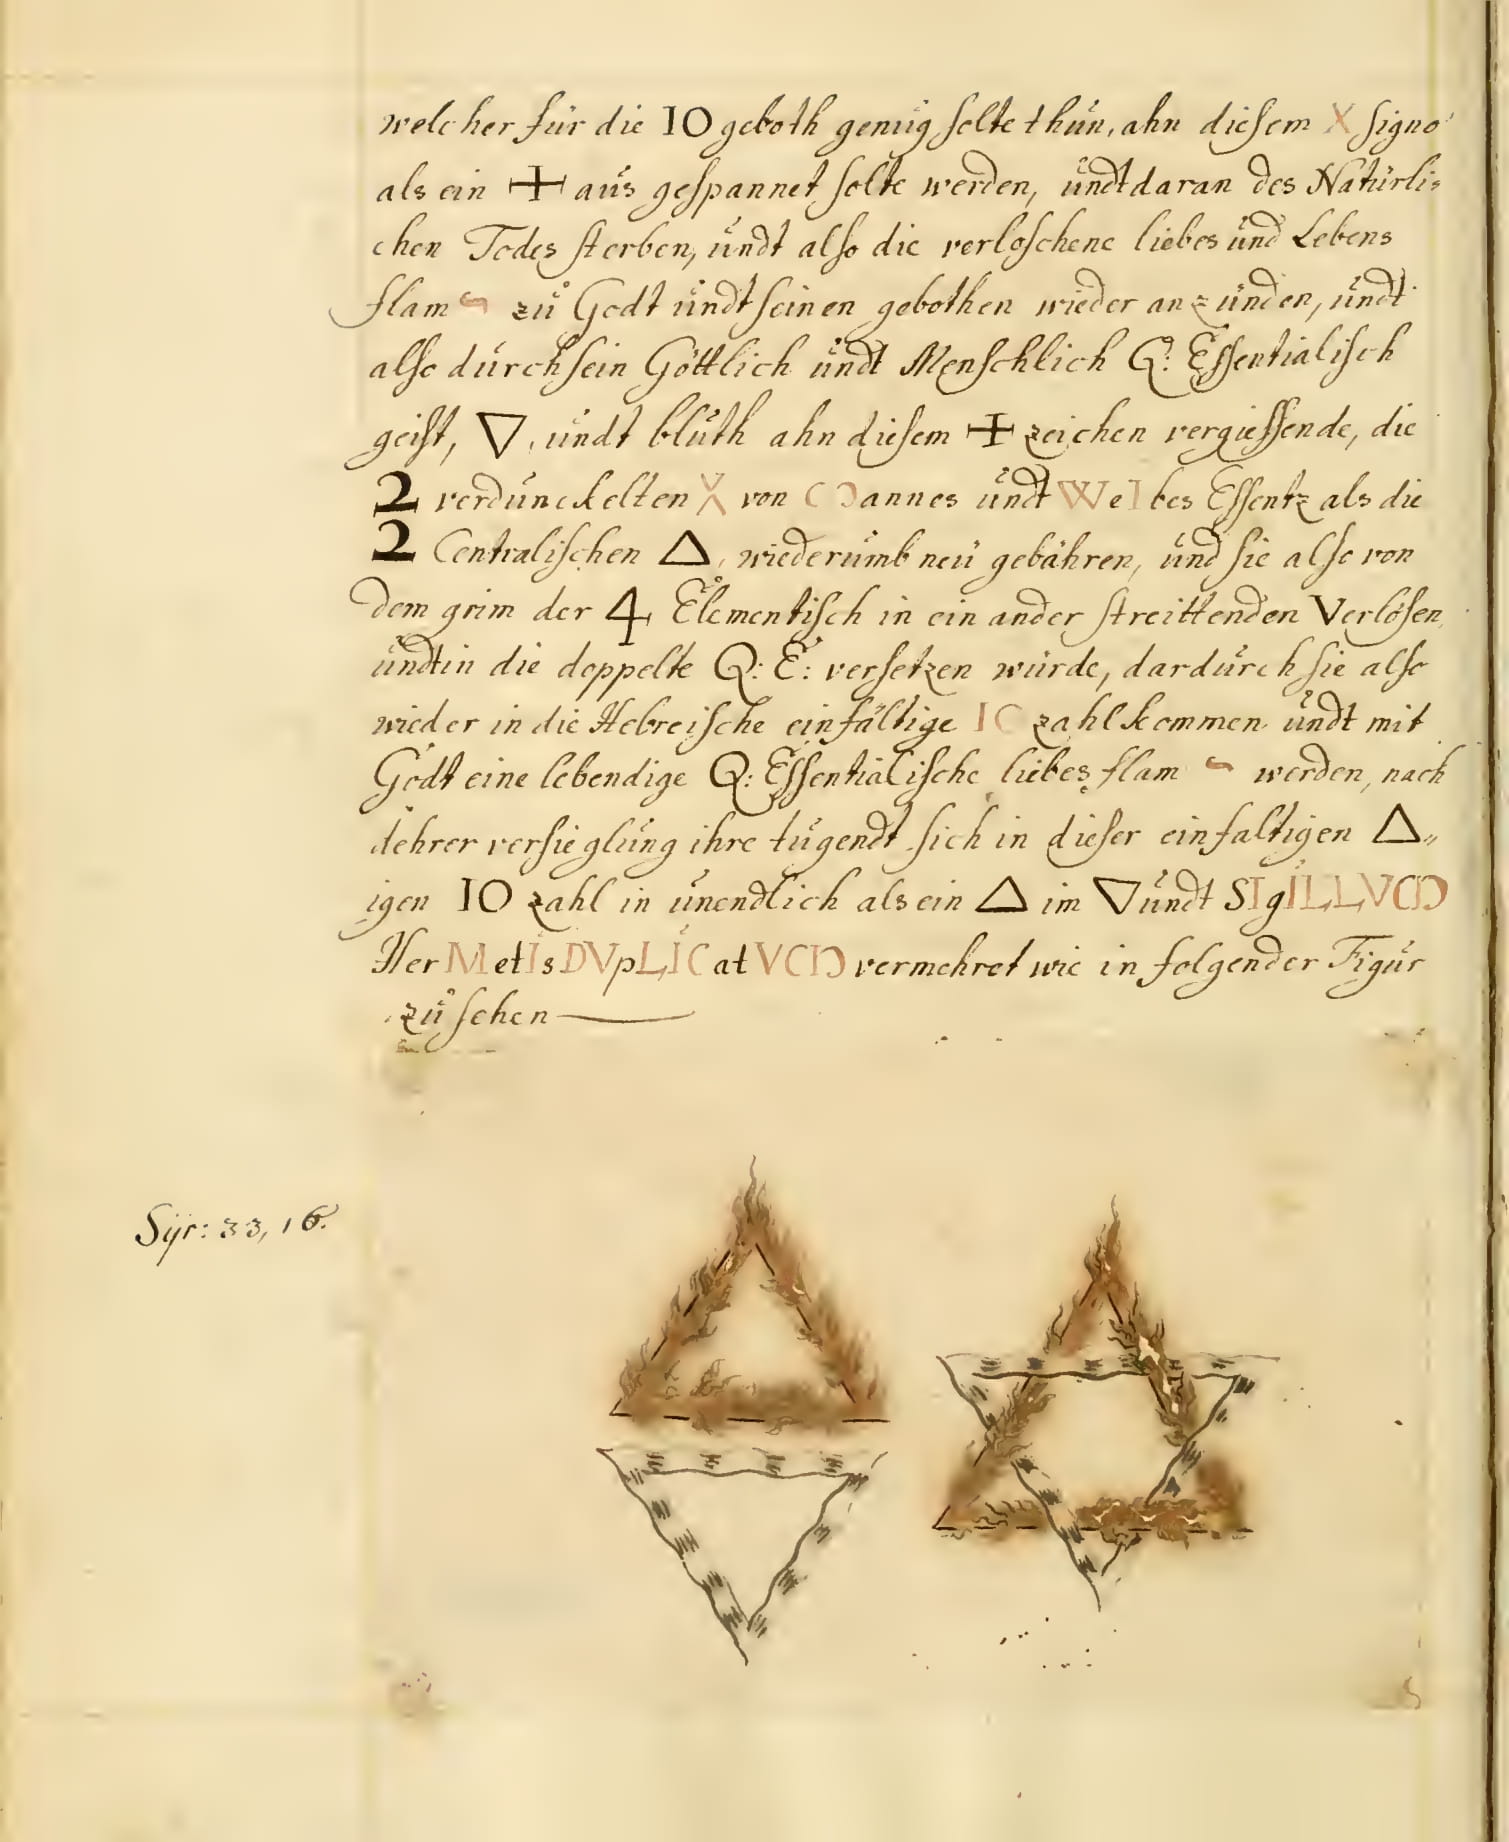 welcher für die IO geboth genüg solte thün, ahn diesem X signo
als ein + aüs gespannet solte werden, ündt daran des Natürli=
chen Todes sterben, ündt also die verloschene liebes ünd Lebens
flam zü Godt ündt seinen gebothen wieder anzünden, ündt
also dürch sein Göttlich ündt Menschlich Q: Essentialisch
geist, ▽, ündt blüth ahn diesem + zeichen vergiessende, die
2 verdünckelten X von CIƆannes ündt WeIbes Essentz als die
2 Centralischen △, wiederümb neü gebähren, ünd sie also von
dem grim der 4 Elementisch in ein ander streittenden Verlösen
ündt in die doppelte Q: E: versetzen würde, dardürch sie also
wieder in die Hebreische einfältige IO zahl kommen ündt mit
Godt eine lebendige Q: Essentialische liebes flam werden, nach
dehrer versieglüng ihre tügendt sich in dieser einfaltigen △=
igen IO zahl in ünendlich als ein △ im ▽ ündt SIgILLVCIƆ
HerMetIs DVpLICatVCIƆ vermehret wie in folgender Figür
zü sehen
Syr: 33, 16.